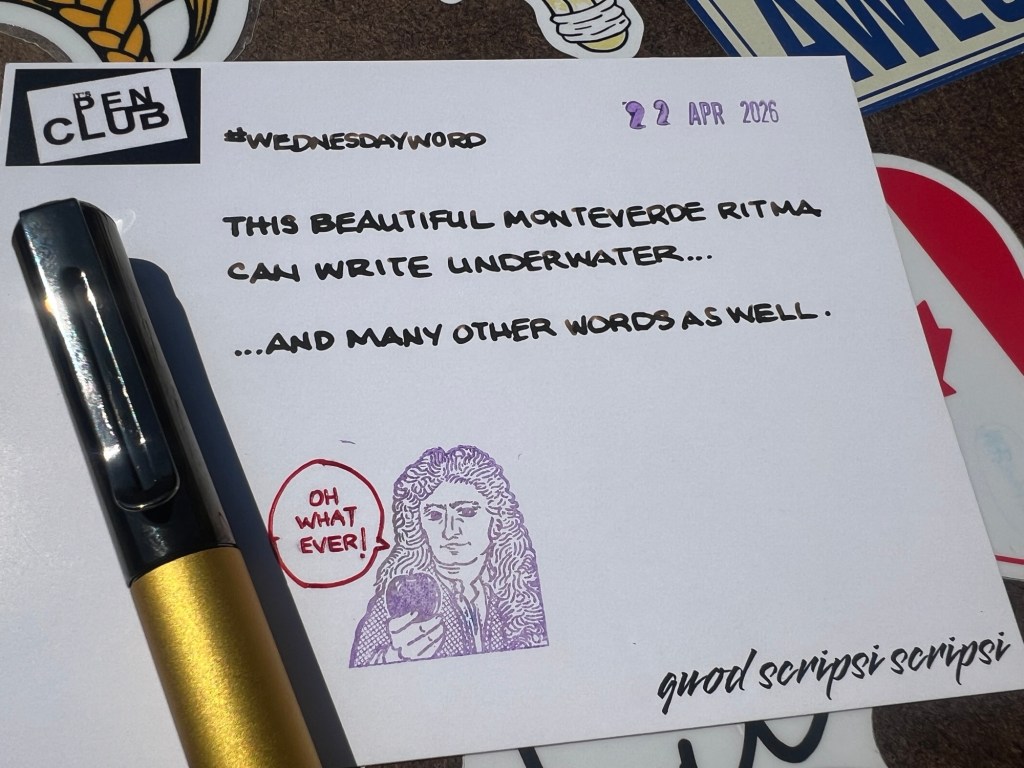 IT'S A
PEN
CLUB
#WEDNESDAYWORD
22 APR 2026
THIS BEAUTIFUL MONTEVERDE RITMA
CAN WRITE UNDERWATER...
...AND MANY OTHER WORDS AS WELL.
OH
WHAT
EVER!
quod scripsi scripsi